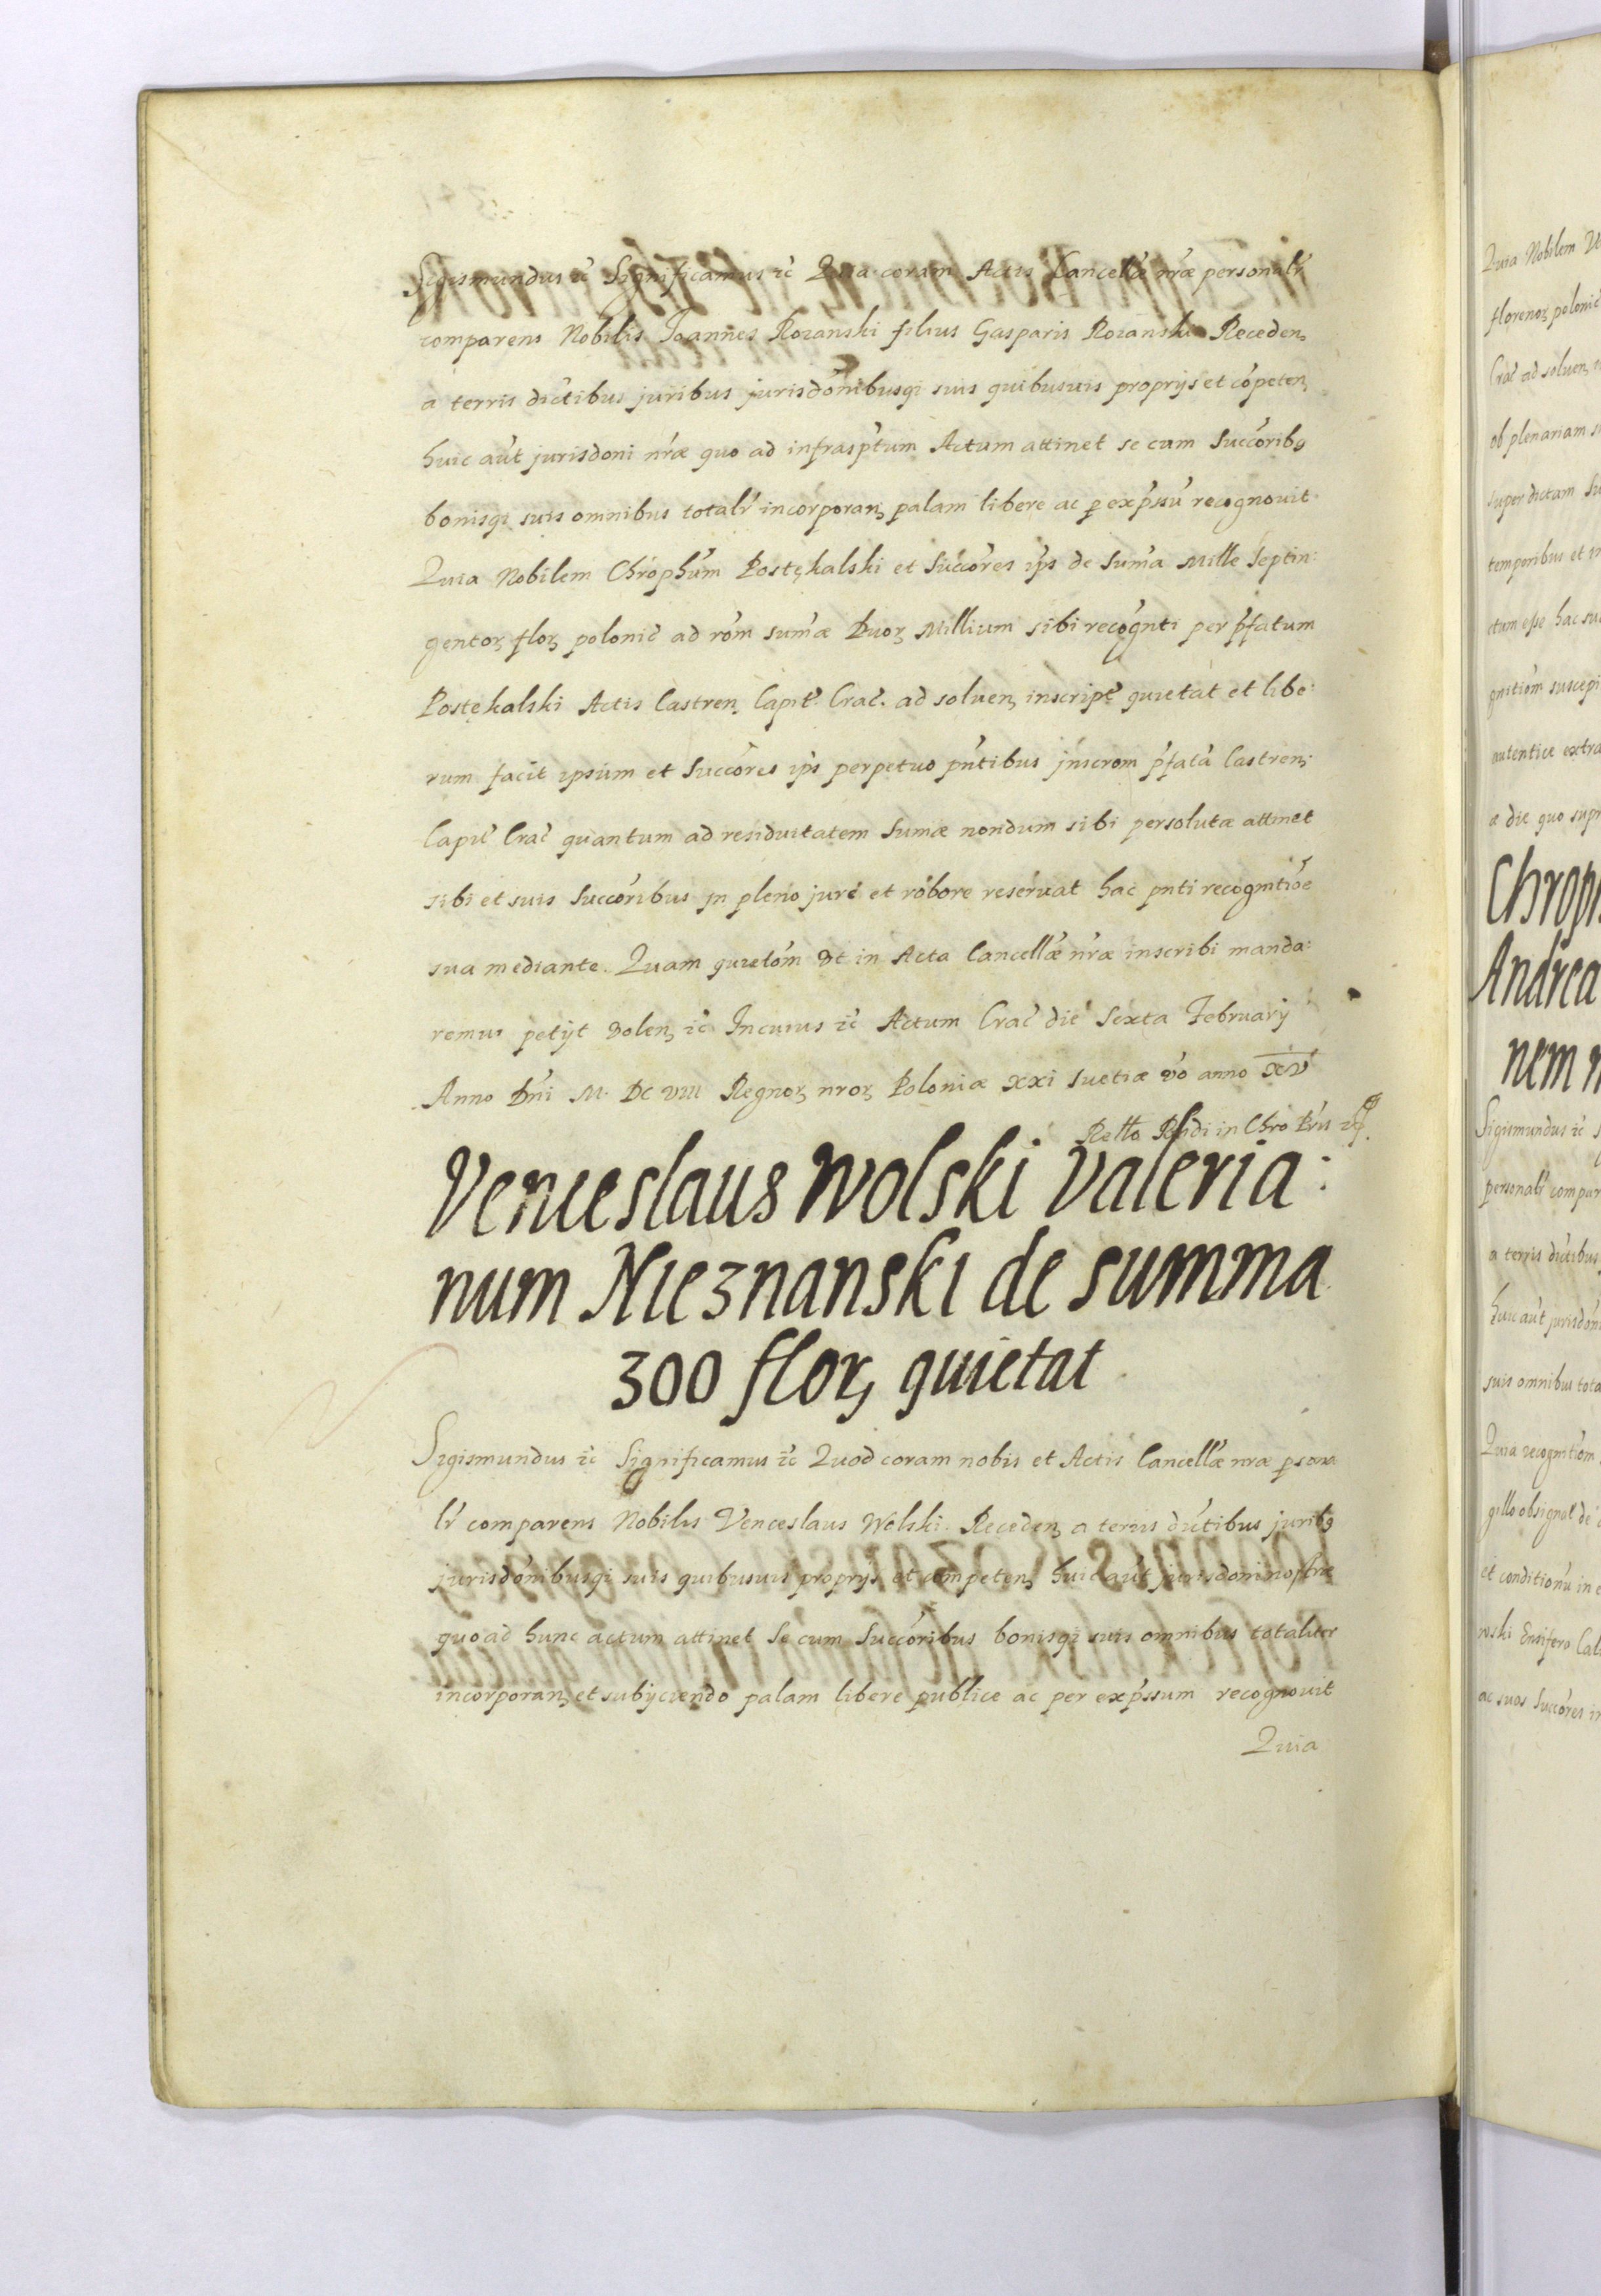 Sigismundus ic Significamus ic Quia coram Actis Cancellæ nræ personalr
comparens Nobilis Joannes Rozanski filius Gasparis Rozanski Receden,
a terris dictibus juribus jurisdonibusqi suis quibusuis proprijs et cõpeten,
huic aut jurisdoni nræ quo ad infrasptum Actum attinet se cum Succorib9
bonisqi suis omnibus totalr incorporan, palam libere ac p expssu recognouit
Quia Nobilem Chrophum Postękalski et Succores ips de Suma Mille Septin:
gentoꝝ floꝝ polonic ad rom sumæ Duoꝝ Millium sibi recognti per pfatum
Postękalski Actis Castren. Capit. Crac. ad soluen, inscript quietat et libe:
rum facit ipsum et Succores ips perpetuo pntibus jnscrom pfata Castren,
Capit Crac quantum ad residuitatem Sumæ nondum sibi persolutæ attinet
sibi et suis Succoribus jn pleno jure et robore reseruat hac pnti recognitioe
sua mediante. Quam quietom vt in Acta Cancellæ nræ inscribi manda:
remus petijt volen, ic Incuius ic Actum Crac die Sexta February
Anno Dni M. DC VIII Regnoꝝ nroꝝ Poloniæ XXI Suetiæ vo anno XV
Retto Rndi in Chro Pris
Venceslaus Wolski Valeria:
num Nieznanski de summa
300 floꝝ quietat
Sigismundus ic Significamus ic Quod coram nobis et Actis Cancellæ nræ persona
lr comparens Nobilis Venceslaus Wolski. Receden, a terris dictibus jurib9
jurisdonibusqi suis quibusuis proprijs et competen, huic aut jurisdoni nostræ
quo ad hunc actum attinet Se cum Succoribus bonisqi suis omnibus totaliter
incorporan, et subijciendo palam libere publice ac per expssum recognouit
Quia
Quia Nobilem
florenoꝝ polonic
Crac ad soluen,
ob plenariam
super dictam
temporibus et
ctum esse hac
gnitiom suscepi
autentice extra
a die quo supr
Chroph
Andrea
nem
Sigismundus ic
personalr compar
a terris dictibus
huic aut jurisdon
suis omnibus tota
Quia recognitiom
gillo obsignat de
et conditionu in
wski Ensifero Cal
ac suos Succores in